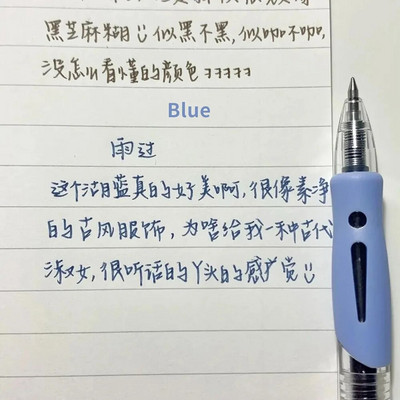 黑芝麻糊☺似黑不黑,似咖不咖,
没怎么看懂的颜色ヨヨヨヨヨ
Blue
雨过
这个湖蓝真的好美啊,很像素净
的古风服饰,为啥给我一种古代
淑女,很听话的丫头的感觉☺